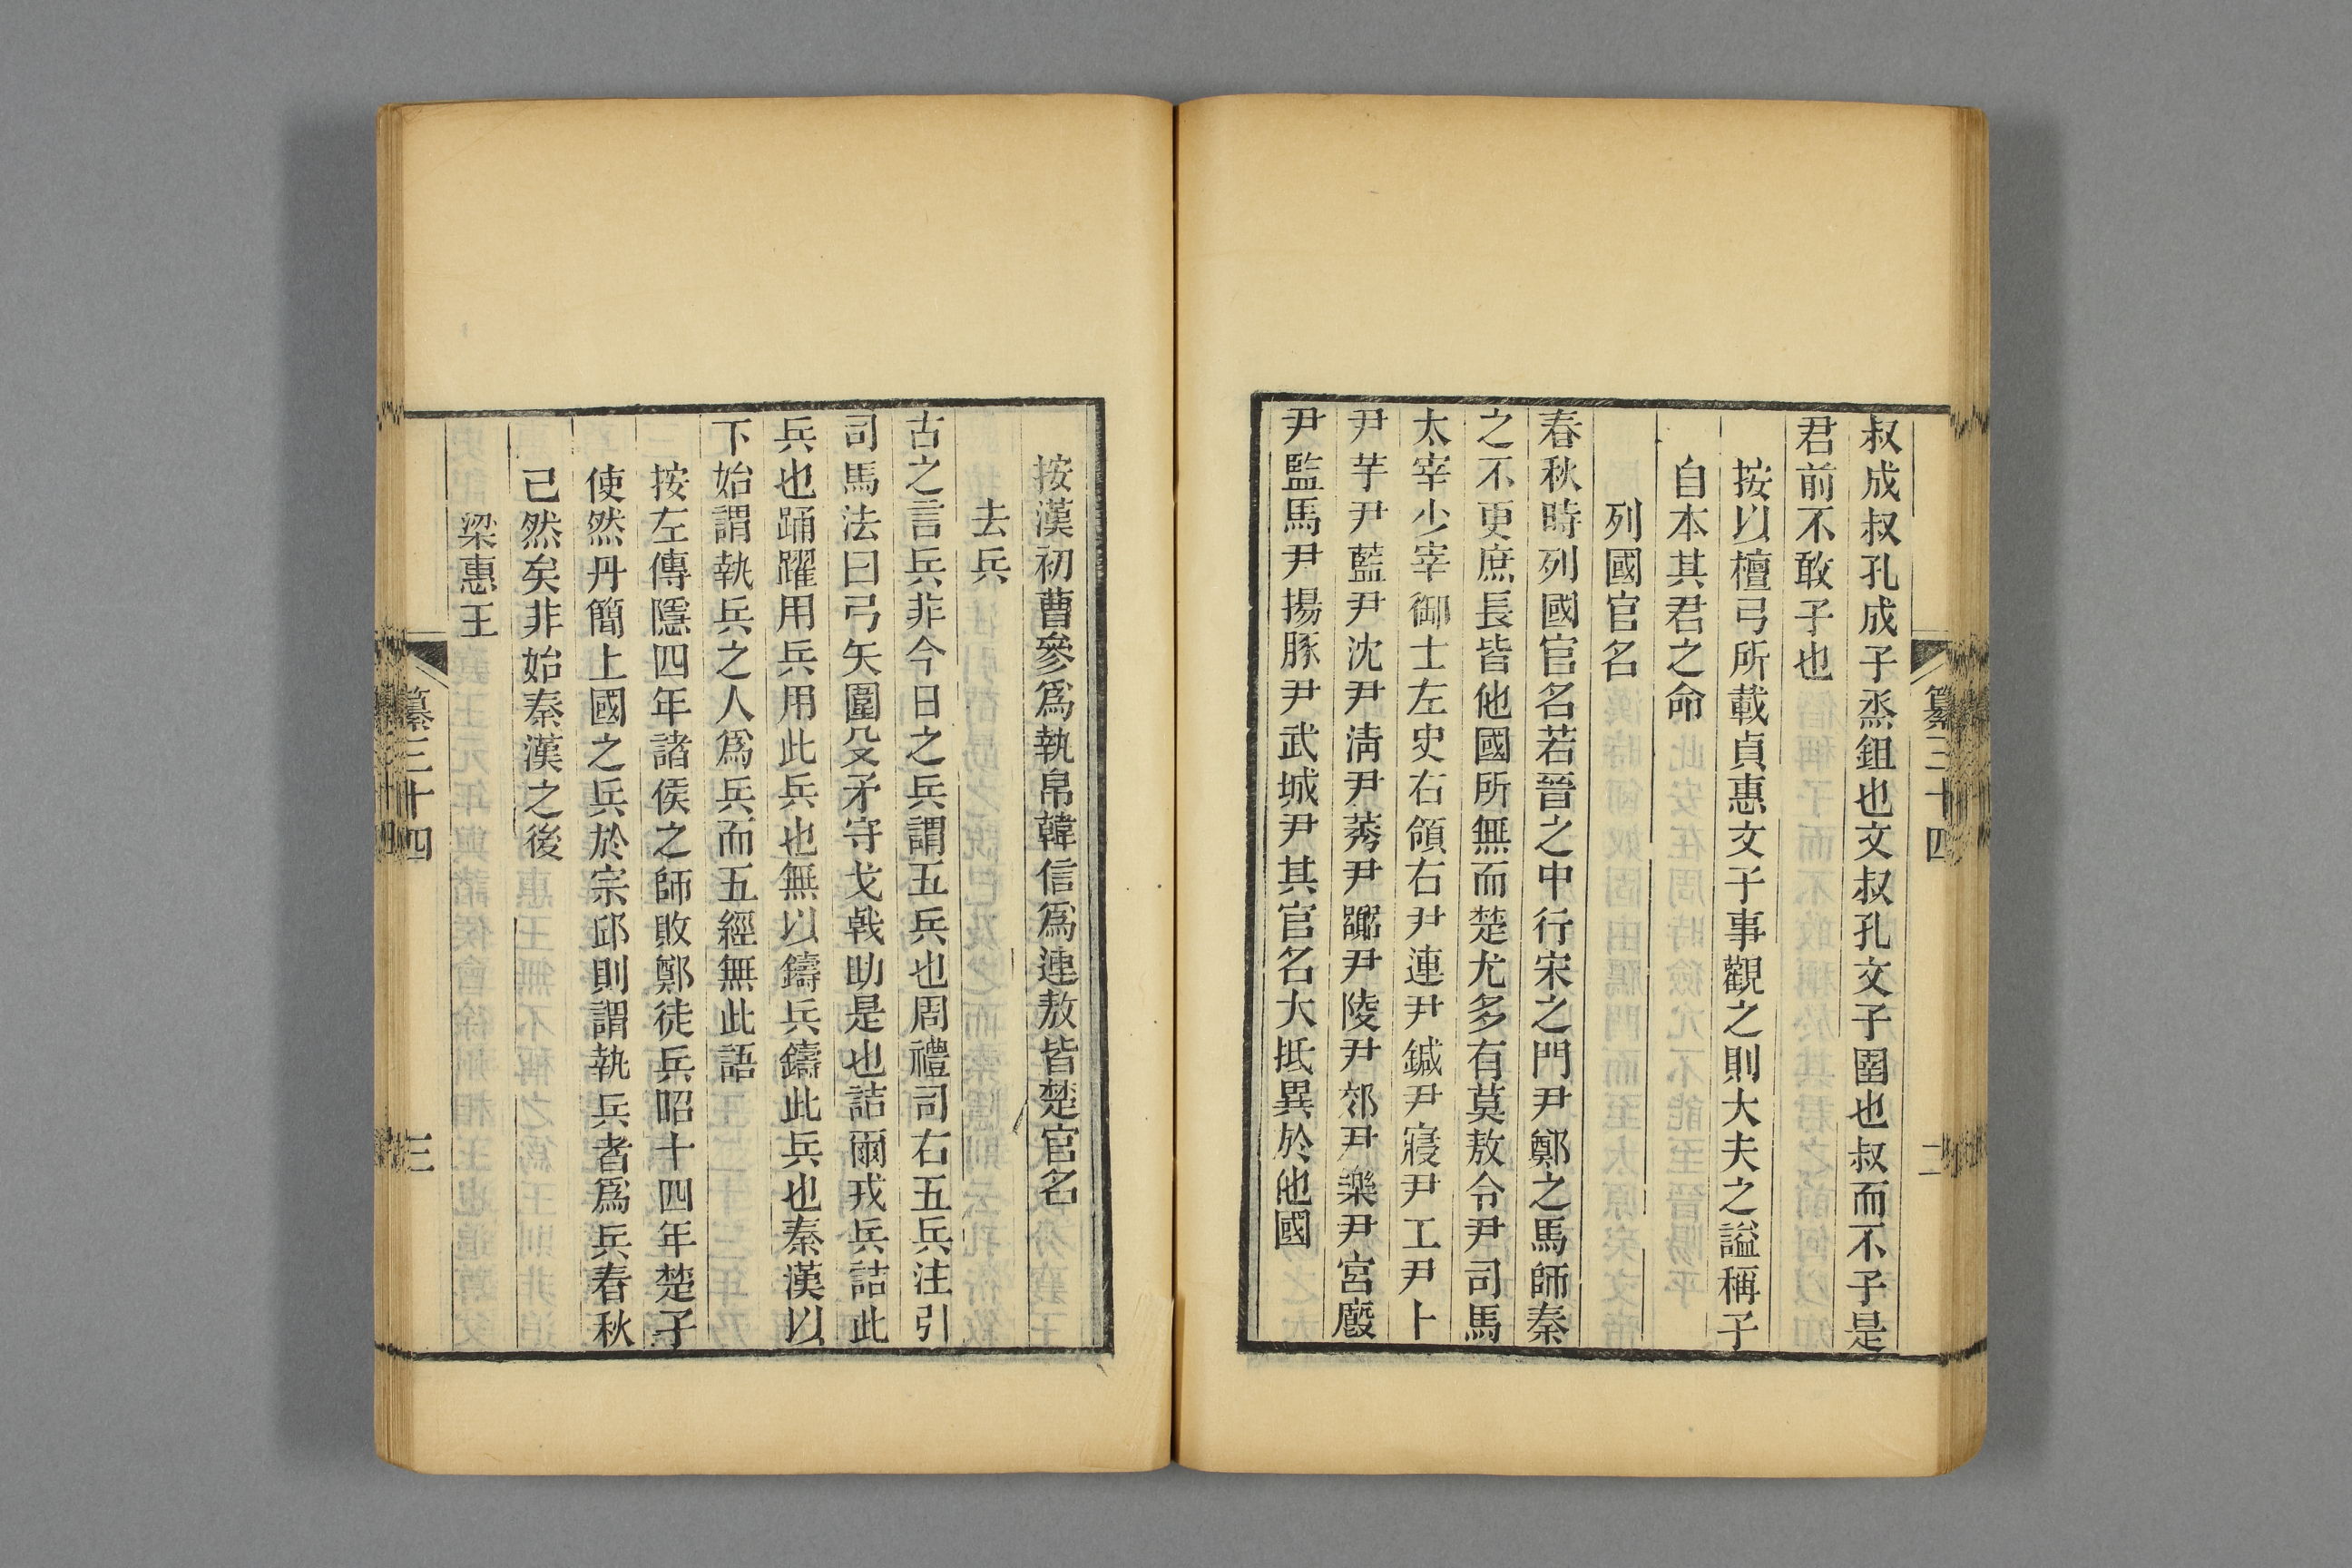 纂三十四
二
叔成叔孔成子烝鉏也文叔孔文子圉也叔而不子是
君前不敢子也
按以檀弓所載貞惠文子事觀之則大夫之謚稱子
自本其君之命
列國官名
春秋時列國官名若晉之中行宋之門尹鄭之馬師秦
之不更庶長皆他國所無而楚尤多有莫敖令尹司馬
太宰少宰御士左史右領右尹連尹鍼尹寢尹工尹卜
尹芋尹藍尹沈尹清尹莠尹嚻尹陵尹郊尹樂尹宮廄
尹監馬尹揚豚尹武城尹其官名大抵異於他國
按漢初曹參爲執帛韓信爲連敖皆楚官名
去兵
古之言兵非今日之兵謂五兵也周禮司右五兵注引
司馬法曰弓矢圍殳矛守戈戟助是也詰爾戎兵詰此
兵也踊躍用兵用此兵也無以鑄兵鑄此兵也秦漢以
下始謂執兵之人爲兵而五經無此語
按左傳隱四年諸侯之師敗鄭徒兵昭十四年楚子
使然丹簡上國之兵於宗邱則謂執兵者爲兵春秋
己然矣非始秦漢之後
梁惠王
纂三十四
三